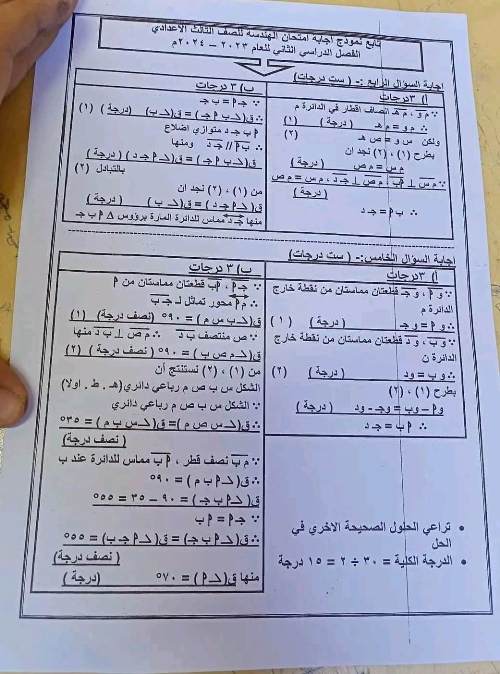 تابع نموذج اجابة امتحان الهندسة للصف الثالث الاعدادي
الفصل الدراسي الثاني للعام ٢٠٢٣ – ٢٠٢٤م
اجابة السؤال الرابع :- ( ست درجات)
أ) ٣درجات
∵ م و ، م هـ انصاف اقطار في الدائرة م
∴ م و = م هـ ( درجة ) (١)
ولكن س و = ص هـ (٢)
بطرح (١) ، (٢) نجد ان
م س = م ص ( درجة )
∵ م س ⊥ أ ب ، م ص ⊥ جـ د ، م س = م ص
( درجة )
∴ أ ب = جـ د
ب) ٣ درجات
∵ جـ أ = ب جـ
∴ ق(∠ ب أ جـ) = ق(∠ ب) (درجة ) (١)
أ ب جـ د متوازي اضلاع
∴ ب أ // جـ د ومنها
ق(∠ ب أ جـ) = ق(∠ أ جـ د ) ( درجة )
بالتبادل (٢)
من (١) ، (٢) نجد ان
ق(∠ أ جـ د ) = ق(∠ ب) ( درجة )
منها جـ د مماس للدائرة المارة برؤوس Δ أ ب جـ
اجابة السؤال الخامس:- ( ست درجات)
أ) ٣درجات
∵ و أ ، و جـ قطعتان مماستان من نقطة خارج
الدائرة م
∴ و أ = و جـ ( درجة ) ( ١ )
∵ و ب ، و د قطعتان مماستان من نقطة خارج
الدائرة ن
∴ و ب = ود ( درجة ) (٢)
بطرح (١) ، (٢)
و أ – وب = وجـ - ود ( درجة )
∴ أ ب = جـ د
ب) ٣ درجات
∵ جـ أ ، أ ب قطعتان مماستان من أ
∴ م أ محور تماثل لـ جـ ب
ق(∠ ب س م ) = ٩٠° (نصف درجة) (١)
∵ ص منتصف ب د ∴ م ص ⊥ ب د منها
ق(∠ م ص ب ) = ٩٠° ( نصف درجة ) (٢)
من (١) ، (٢) نستنتج أن
الشكل س ب ص م رباعي دائري(هـ . ط . اولا)
∵ الشكل س ب ص م رباعي دائري
∴ ق(∠ س ص م )= ق(∠ س ب م ) = ٣٥°
( نصف درجة)
∵ م ب نصف قطر ، أ ب مماس للدائرة عند ب
∴ ق(∠ أ ب م ) = ٩٠°
ق(∠ أ ب جـ ) = ٩٠ – ٣٥ = ٥٥°
∵ جـ أ = أ ب
∴ ق(∠ أ ب جـ) = ق(∠ أ جـ ب) = ٥٥°
( نصف درجة)
منها ق(∠ أ ) = ٧٠° (درجة )
• تراعي الحلول الصحيحة الاخري في
الحل
• الدرجة الكلية = ٣٠ ÷ ٢ = ١٥ درجة